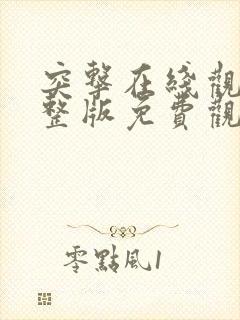 突擊在綫觀
整版免費觀
零點風1